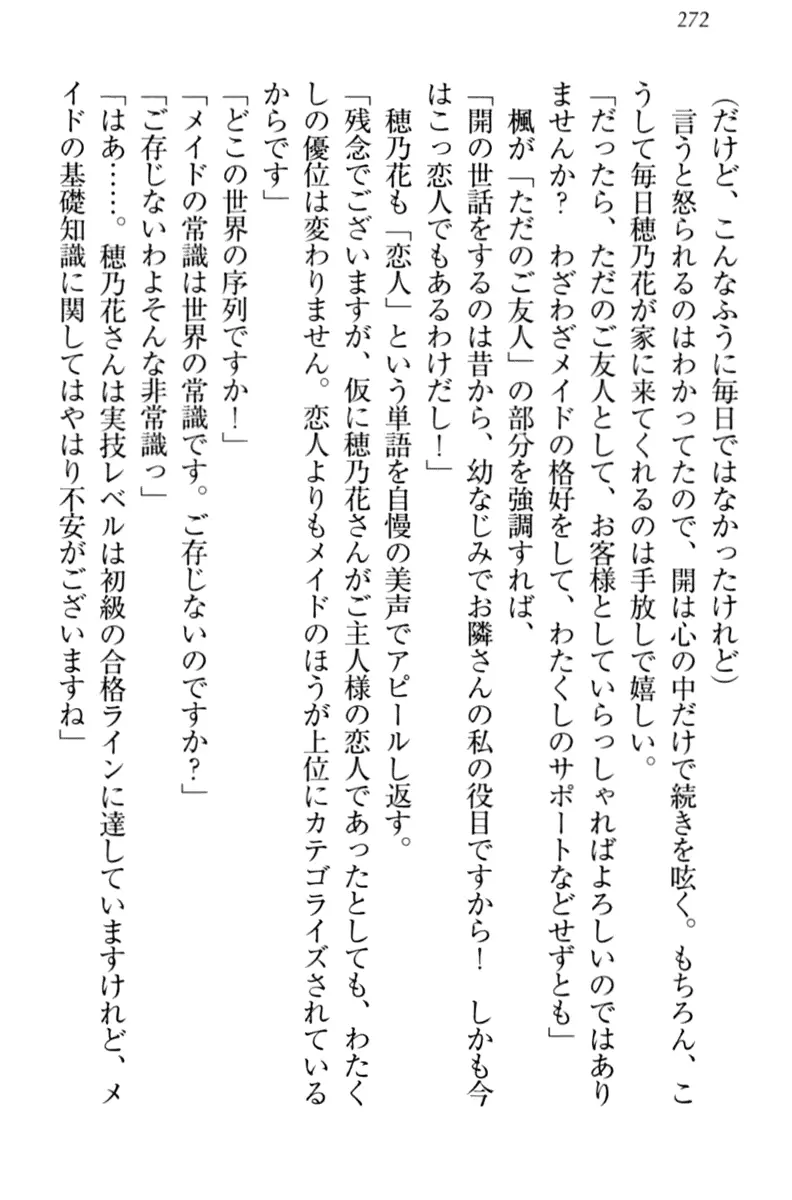 272
(だけど、こんなふうに毎日ではなかったけれど)
言うと怒られるのはわかってたので、開は心の中だけで続きを呟く。もちろん、こ
うして毎日穂乃花が家に来てくれるのは手放しで嬉しい。
「だったら、ただのご友人として、お客様としていらっしゃればよろしいのではあり
ませんか?　わざわざメイドの格好をして、わたくしのサポートなどせずとも」
楓が「ただのご友人」の部分を強調すれば、
「開の世話をするのは昔から、幼なじみでお隣さんの私の役目ですから!　しかも今
はこっ恋人でもあるわけだし!」
穂乃花も「恋人」という単語を自慢の美声でアピールし返す。
「残念でございますが、仮に穂乃花さんがご主人様の恋人であったとしても、わたく
しの優位は変わりません。恋人よりもメイドのほうが上位にカテゴライズされている
からです」
「どこの世界の序列ですか!」
「メイドの常識は世界の常識です。ご存じないのですか?」
「ご存じないわよそんな非常識っ」
「はあ……。穂乃花さんは実技レベルは初級の合格ラインに達していますけれど、メ
イドの基礎知識に関してはやはり不安がございますね」